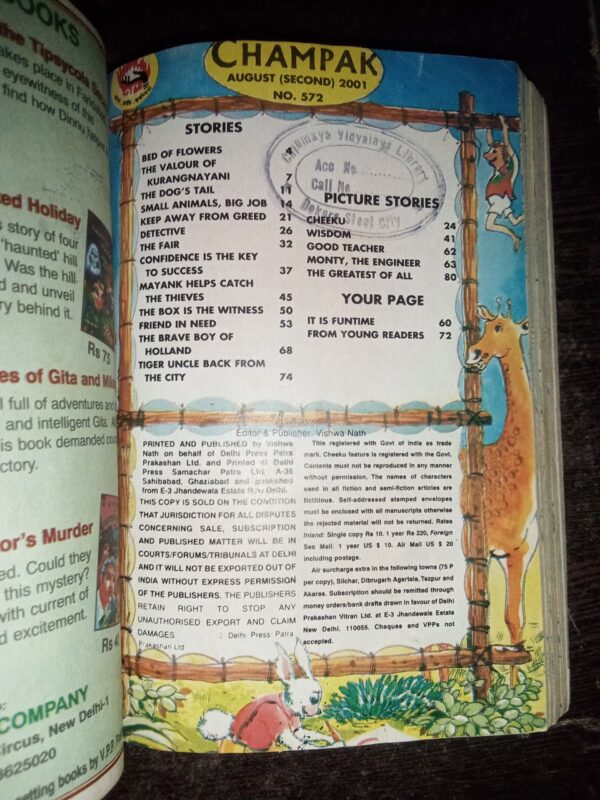 BOOKS
the Tipsycola
takes place in Faridabad
eyewitness of this
find how Dinnu helped
ted Holiday
s story of four
'haunted' hill
Was the hill
d and unveil
ry behind it.
Rs 75
es of Gita and
l full of adventures and
and intelligent Gita.
is book demanded
ctory.
or's Murder
ed. Could they
this mystery?
with current of
d excitement.
COMPANY
ircus, New Delhi-1
3625020
etting books by V.P.P.
CHAMPAK
AUGUST (SECOND) 2001
NO. 572
STORIES
BED OF FLOWERS
THE VALOUR OF
KURANGNAYANI 7
THE DOG'S TAIL 11
SMALL ANIMALS, BIG JOB 14
KEEP AWAY FROM GREED 21
DETECTIVE 26
THE FAIR 32
CONFIDENCE IS THE KEY
TO SUCCESS 37
MAYANK HELPS CATCH
THE THIEVES 45
THE BOX IS THE WITNESS 50
FRIEND IN NEED 53
THE BRAVE BOY OF
HOLLAND 68
TIGER UNCLE BACK FROM
THE CITY 74
Chinmaya Vidyalaya Library
Acc No.
Call No
Bokaro Steel City
PICTURE STORIES
CHEEKU 24
WISDOM 41
GOOD TEACHER 62
MONTY, THE ENGINEER 63
THE GREATEST OF ALL 80
YOUR PAGE
IT IS FUNTIME 60
FROM YOUNG READERS 72
Editor & Publisher: Vishwa Nath
PRINTED AND PUBLISHED by Vishwa
Nath on behalf of Delhi Press Patra
Prakashan Ltd. and Printed at Delhi
Press Samachar Patra Ltd. A-36
Sahibabad, Ghaziabad and published
from E-3 Jhandewala Estate New Delhi.
THIS COPY IS SOLD ON THE CONDITION
THAT JURISDICTION FOR ALL DISPUTES
CONCERNING SALE, SUBSCRIPTION
AND PUBLISHED MATTER WILL BE IN
COURTS/FORUMS/TRIBUNALS AT DELHI
AND IT WILL NOT BE EXPORTED OUT OF
INDIA WITHOUT EXPRESS PERMISSION
OF THE PUBLISHERS. THE PUBLISHERS
RETAIN RIGHT TO STOP ANY
UNAUTHORISED EXPORT AND CLAIM
DAMAGES. : Delhi Press Patra
Prakashan Ltd
Title registered with Govt of India as trade
mark. Cheeku feature is registered with the Govt.
Contents must not be reproduced in any manner
without permission. The names of characters
used in all fiction and semi-fiction articles are
fictitious. Self-addressed stamped envelopes
must be enclosed with all manuscripts otherwise
the rejected material will not be returned. Rates
Inland: Single copy Rs 10. 1 year Rs 220, Foreign
Sea Mail: 1 year US $ 10. Air Mail US $ 20
including postage.
Air surcharge extra in the following towns (75 P
per copy), Silchar, Dibrugarh Agartala, Tezpur and
Akaras. Subscription should be remitted through
money orders/bank drafts drawn in favour of Delhi
Prakashan Vitran Ltd. at E-3 Jhandewala Estate
New Delhi. 110055. Cheques and VPPs not
accepted.